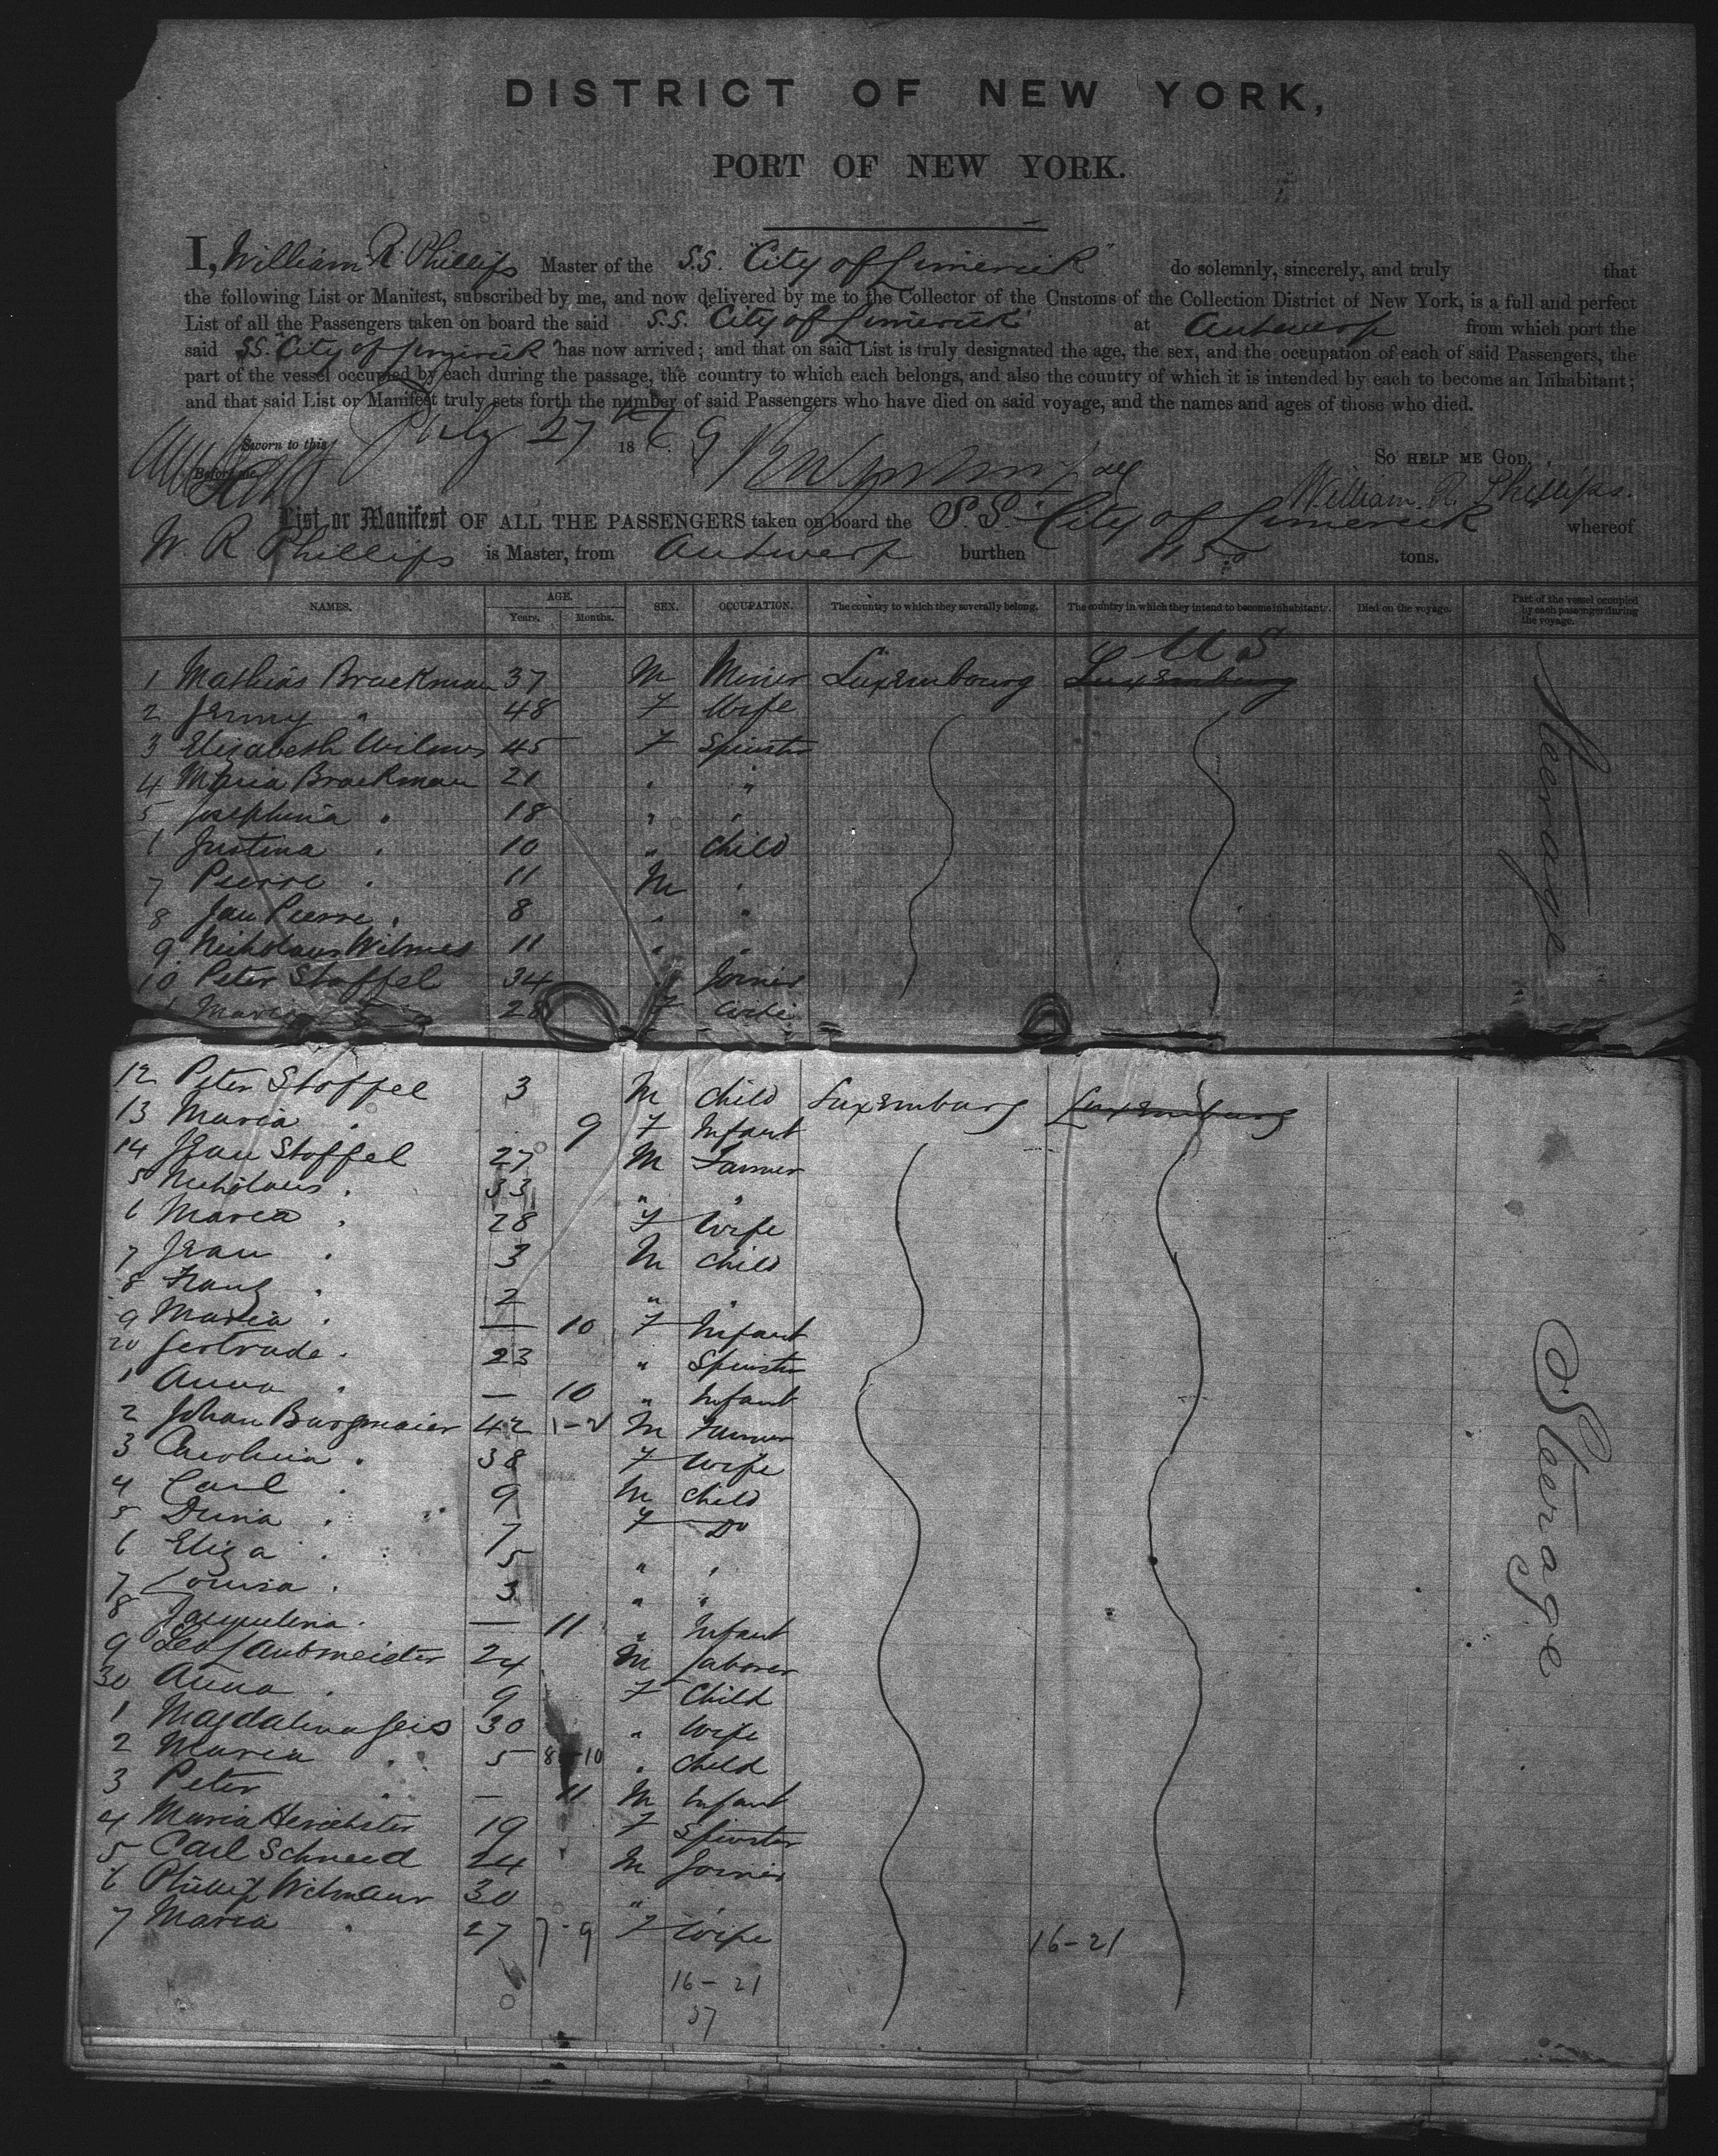 DISTRICT OF NEW YORK,
PORT OF NEW YORK.
I, William R. Phillips Master of the S.S. "City of Limerick" do solemnly, sincerely, and truly that
the following List or Manifest, subscribed by me, and now delivered by me to the Collector of the Customs of the Collection District of New York, is a full and perfect
List of all the Passengers taken on board the said S.S. City of Limerick at Antwerp from which port the
said S.S. "City of Limerick" has now arrived; and that on said List is truly designated the age, the sex, and the occupation of each of said Passengers, the
part of the vessel occupied by each during the passage, the country to which each belongs, and also the country of which it is intended by each to become an Inhabitant;
and that said List or Manifest truly sets forth the number of said Passengers who have died on said voyage, and the names and ages of those who died.
Sworn to this July 27 1869
So HELP ME GOD.
Before me
William R. Phillips.
List or Manifest OF ALL THE PASSENGERS taken on board the S.S. City of Limerick whereof
W. R. Phillips is Master, from Antwerp burthen tons.
NAMES. AGE. Years. Months. SEX. OCCUPATION. The country to which they severally belong. The country in which they intend to become inhabitants. Died on the voyage. Part of the vessel occupied by each passenger during the voyage.
U S
1 Mathias Brackman 37 M Miner Luxembourg Luxemburg
2 Jenny " 48 F Wife
3 Elizabeth Wilmes 45 F Spinster
4 Maria Brackman 21 " "
5 Josephina " 18 " "
6 Justina " 10 " Child
7 Pierre " 11 M "
8 Jan Pierre " 8 " "
9 Nicholaus Wilmes 11 " "
10 Peter Stoffel 34 " Joiner
Maria 28 F Wife
Steerage
12 Peter Stoffel 3 M Child Luxemburg Luxemburg
13 Maria " 9 F Infant
14 Jean Stoffel 27 M Farmer
5 Nicholaus " 33 " "
6 Maria " 28 F Wife
7 Jean " 3 M Child
8 Franz " 2 " "
9 Maria " — 10 F Infant
20 Gertrude " 23 " Spinster
1 Anna " — 10 " Infant
2 Johan Burgmaier 42 1-2 M Farmer
3 Carolina " 38 F Wife
4 Carl " 9 M Child
5 " 7 F Do
6 Eliza " 5 " "
7 Louisa " 3 " "
8 Jaqulina " — 11 " Infant
9 24 M Laborer
30 Anna " 9 F Child
1 Magdalina Geis 30 " Wife
2 Maria " 5 8-10 " Child
3 Peter " — 11 M Infant
4 Maria 19 F Spinster
5 Carl Schneid 24 M Joiner
6 Phillip 30 " "
7 Maria " 27 7-9 F Wife 16-21
16-21
37
Sterage